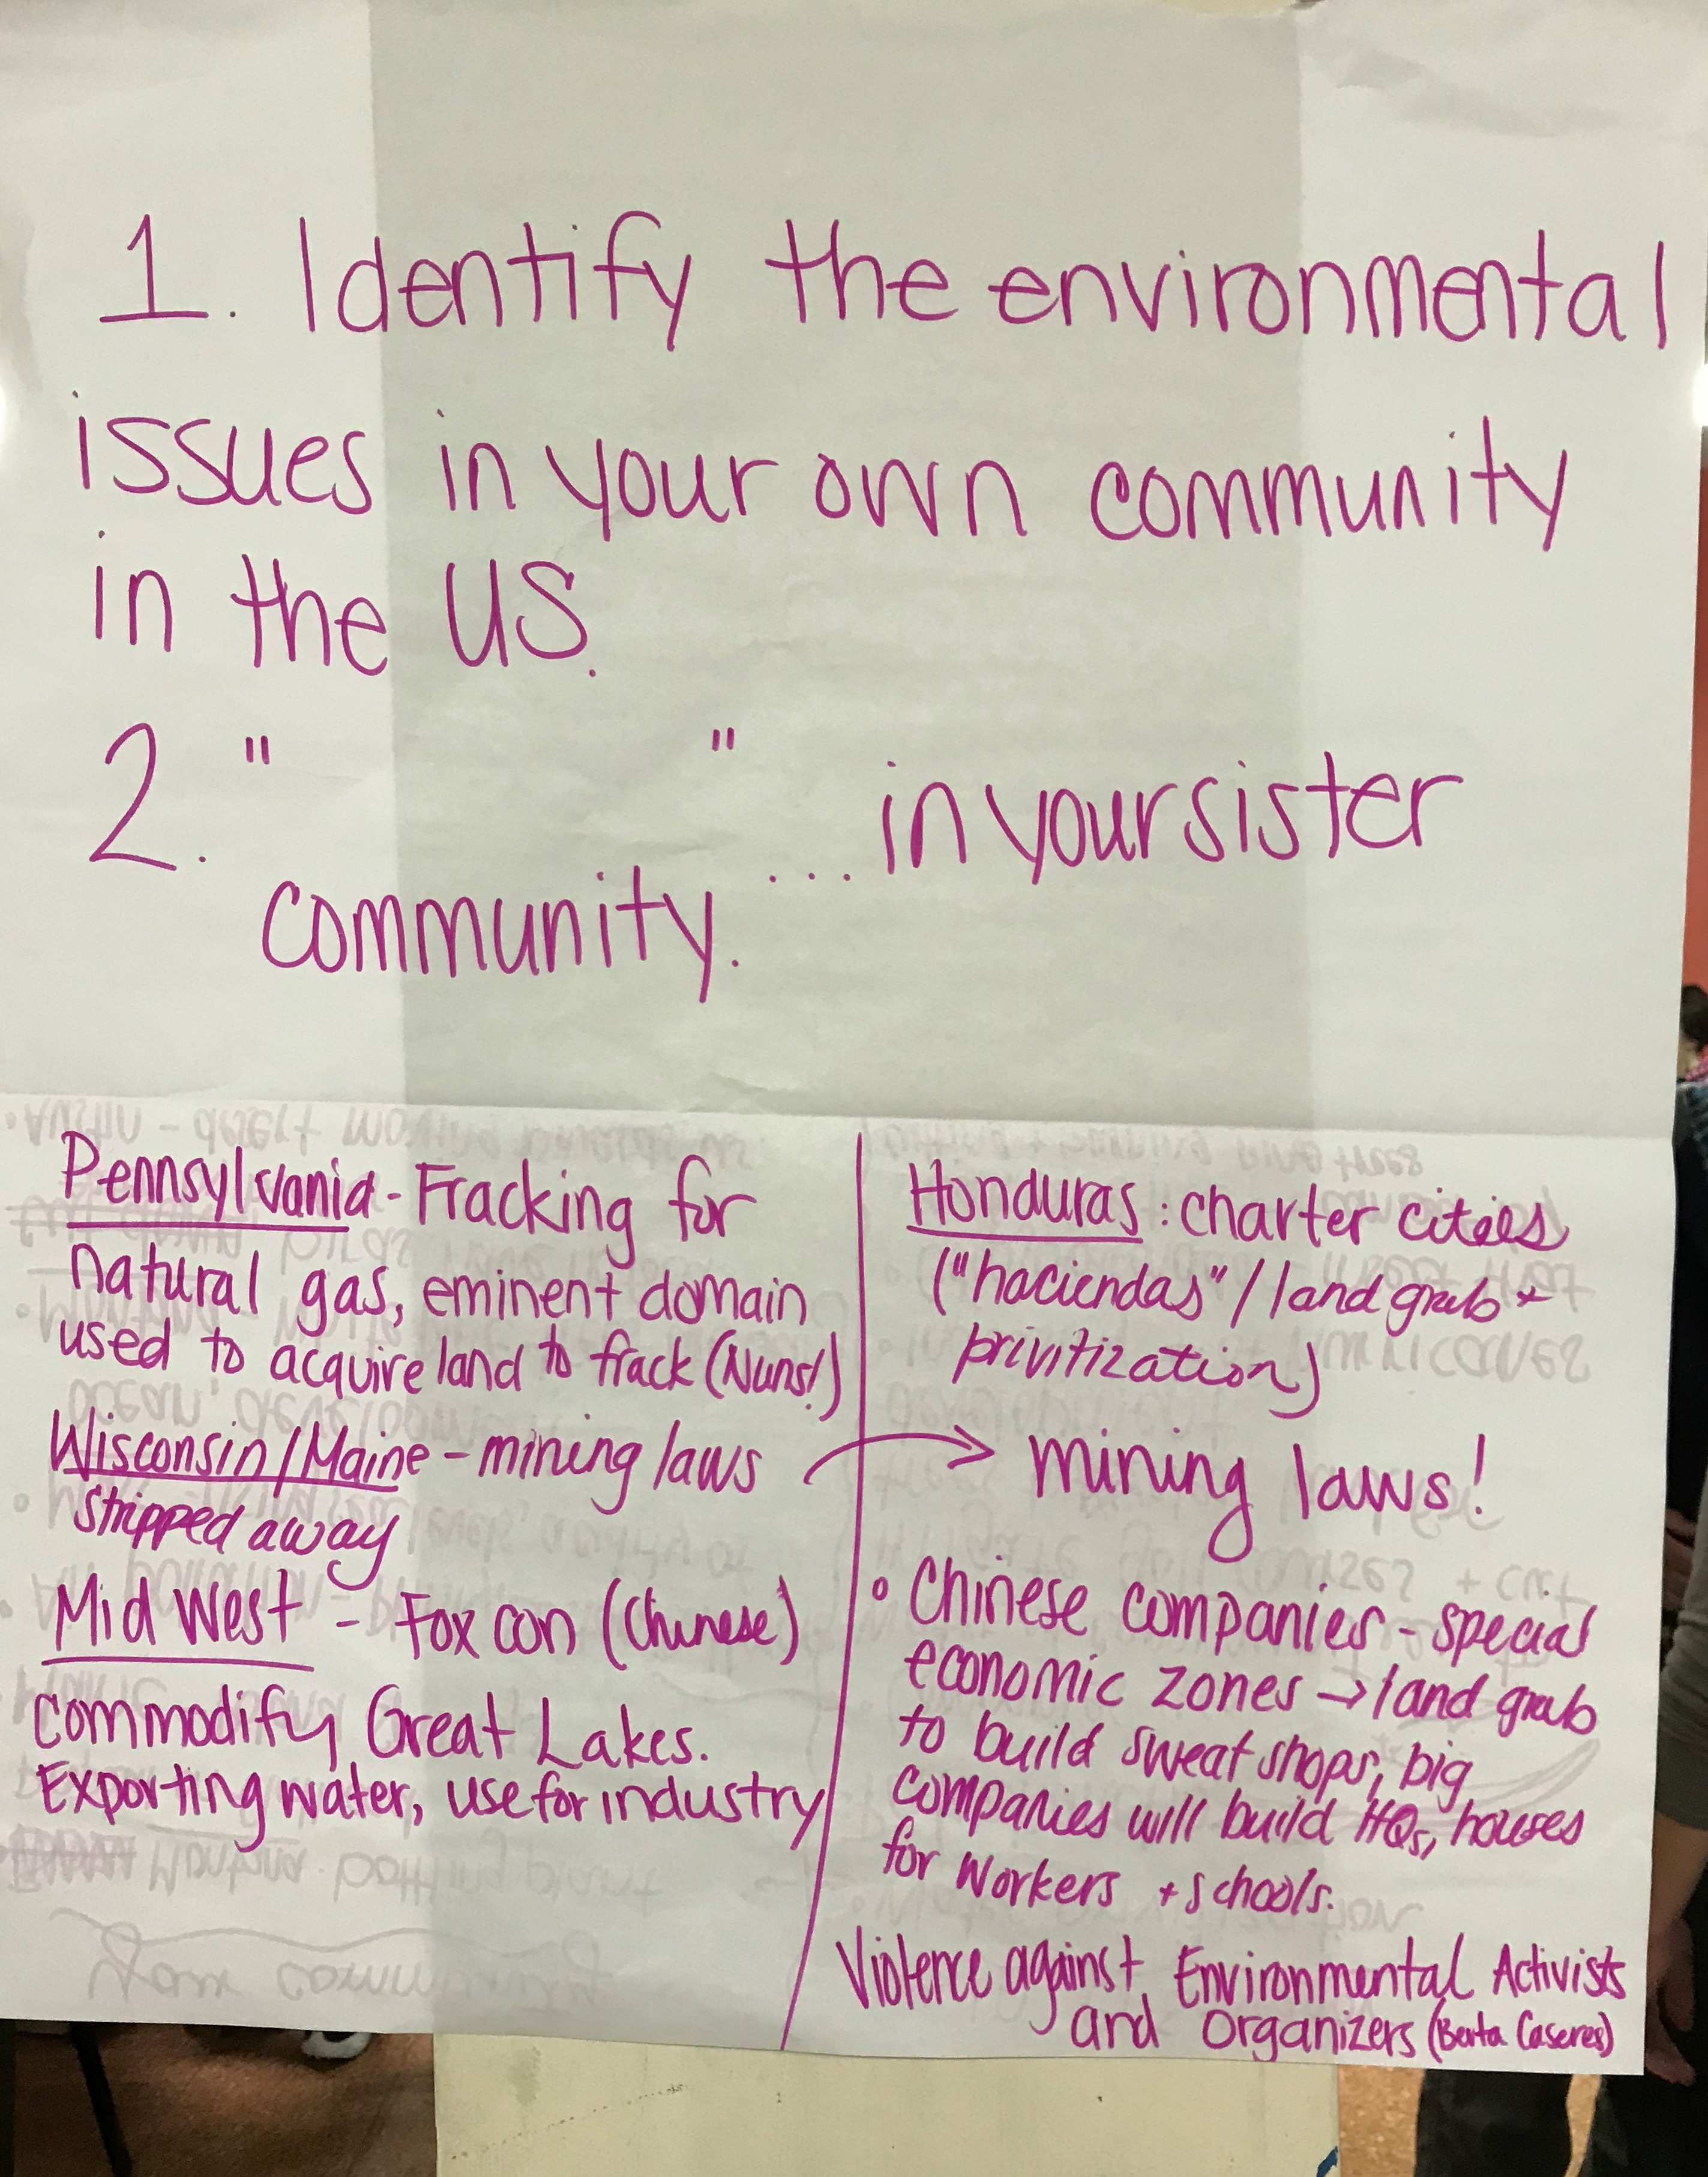 1. Identify the environmental
issues in your own community
in the US.
2. " " ... in your sister
community.
Pennsylvania - Fracking for
natural gas, eminent domain
used to acquire land to frack (Nuns!)
Wisconsin/Maine - mining laws
stripped away
Mid West - Fox con (Chinese)
commodify Great Lakes.
Exporting water, use for industry
Honduras: charter cities
("haciendas" / land grab +
privitization)
→ mining laws!
• Chinese companies - special
economic zones → land grab
to build sweat shops, big
companies will build HQs, houses
for workers + schools.
Violence against Environmental Activists
and Organizers (Berta Caseres)